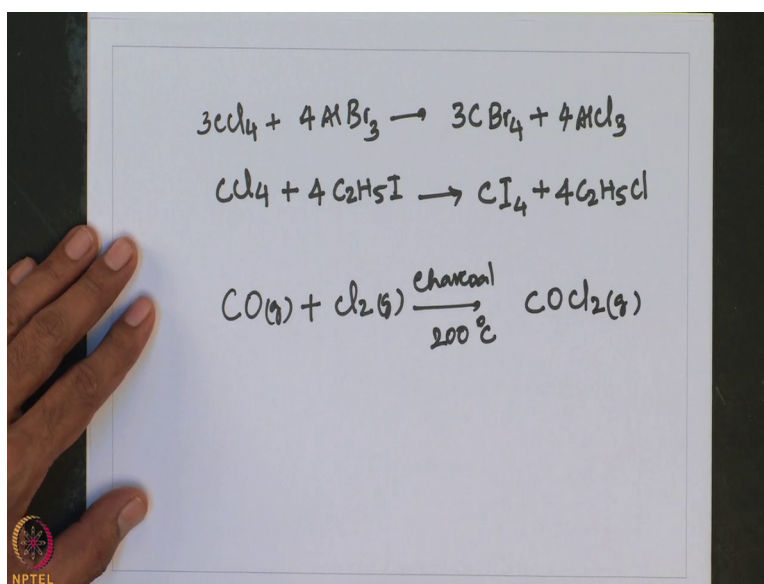 3CCl4 + 4AlBr3 → 3CBr4 + 4AlCl3
CCl4 + 4C2H5I → CI4 + 4C2H5Cl
CO(g) + Cl2(g) charcoal 200°C → COCl2(g)
NPTEL